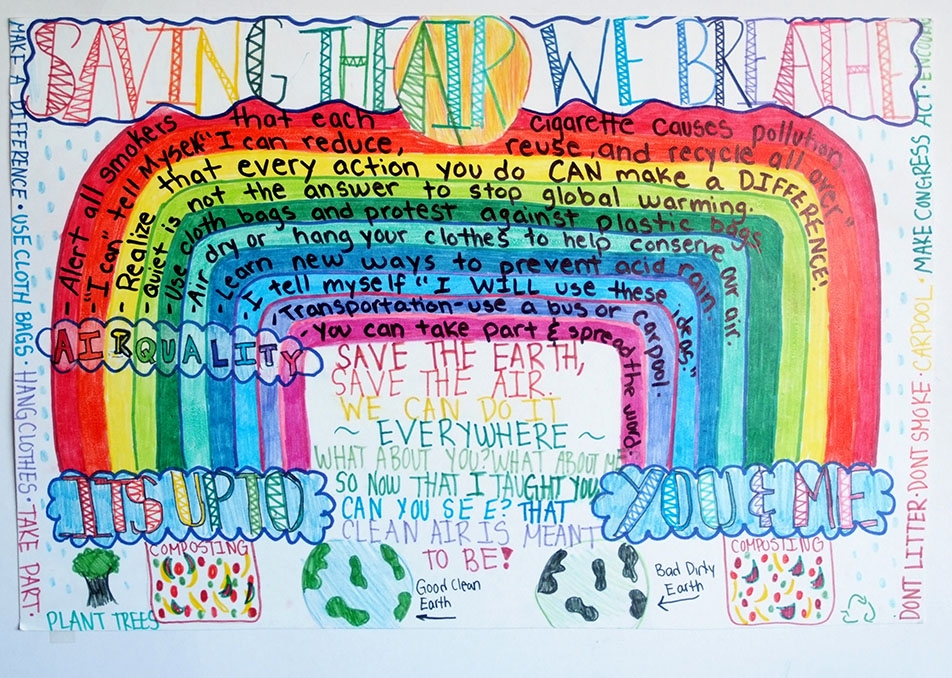 SAVING THE AIR WE BREATHE
MAKE A DIFFERENCE • USE CLOTH BAGS • HANG CLOTHES • TAKE PART •
- Alert all smokers that each cigarette causes pollution
- "I can" tell Myself "I can reduce, reuse, and recycle all over"
- Realize that every action you do CAN make a DIFFERENCE!
- quiet is not the answer to stop global warming.
- Use cloth bags and protest against plastic bags
- Air dry or hang your clothes to help conserve our air.
- Learn new ways to prevent acid rain.
- I tell myself "I WILL use these ideas."
- Transportation - use a bus or carpool.
- You can take part & spread the word.
AIR QUALITY
SAVE THE EARTH,
SAVE THE AIR.
WE CAN DO IT
~ EVERYWHERE ~
WHAT ABOUT YOU? WHAT ABOUT ME
SO NOW THAT I TAUGHT YOU
CAN YOU SEE? THAT
CLEAN AIR IS MEANT
TO BE!
ITS UP TO
YOU & ME
PLANT TREES
COMPOSTING
Good Clean
Earth
Bad Dirty
Earth
COMPOSTING
DONT LITTER • DONT SMOKE • CARPOOL • MAKE CONGRESS ACT •